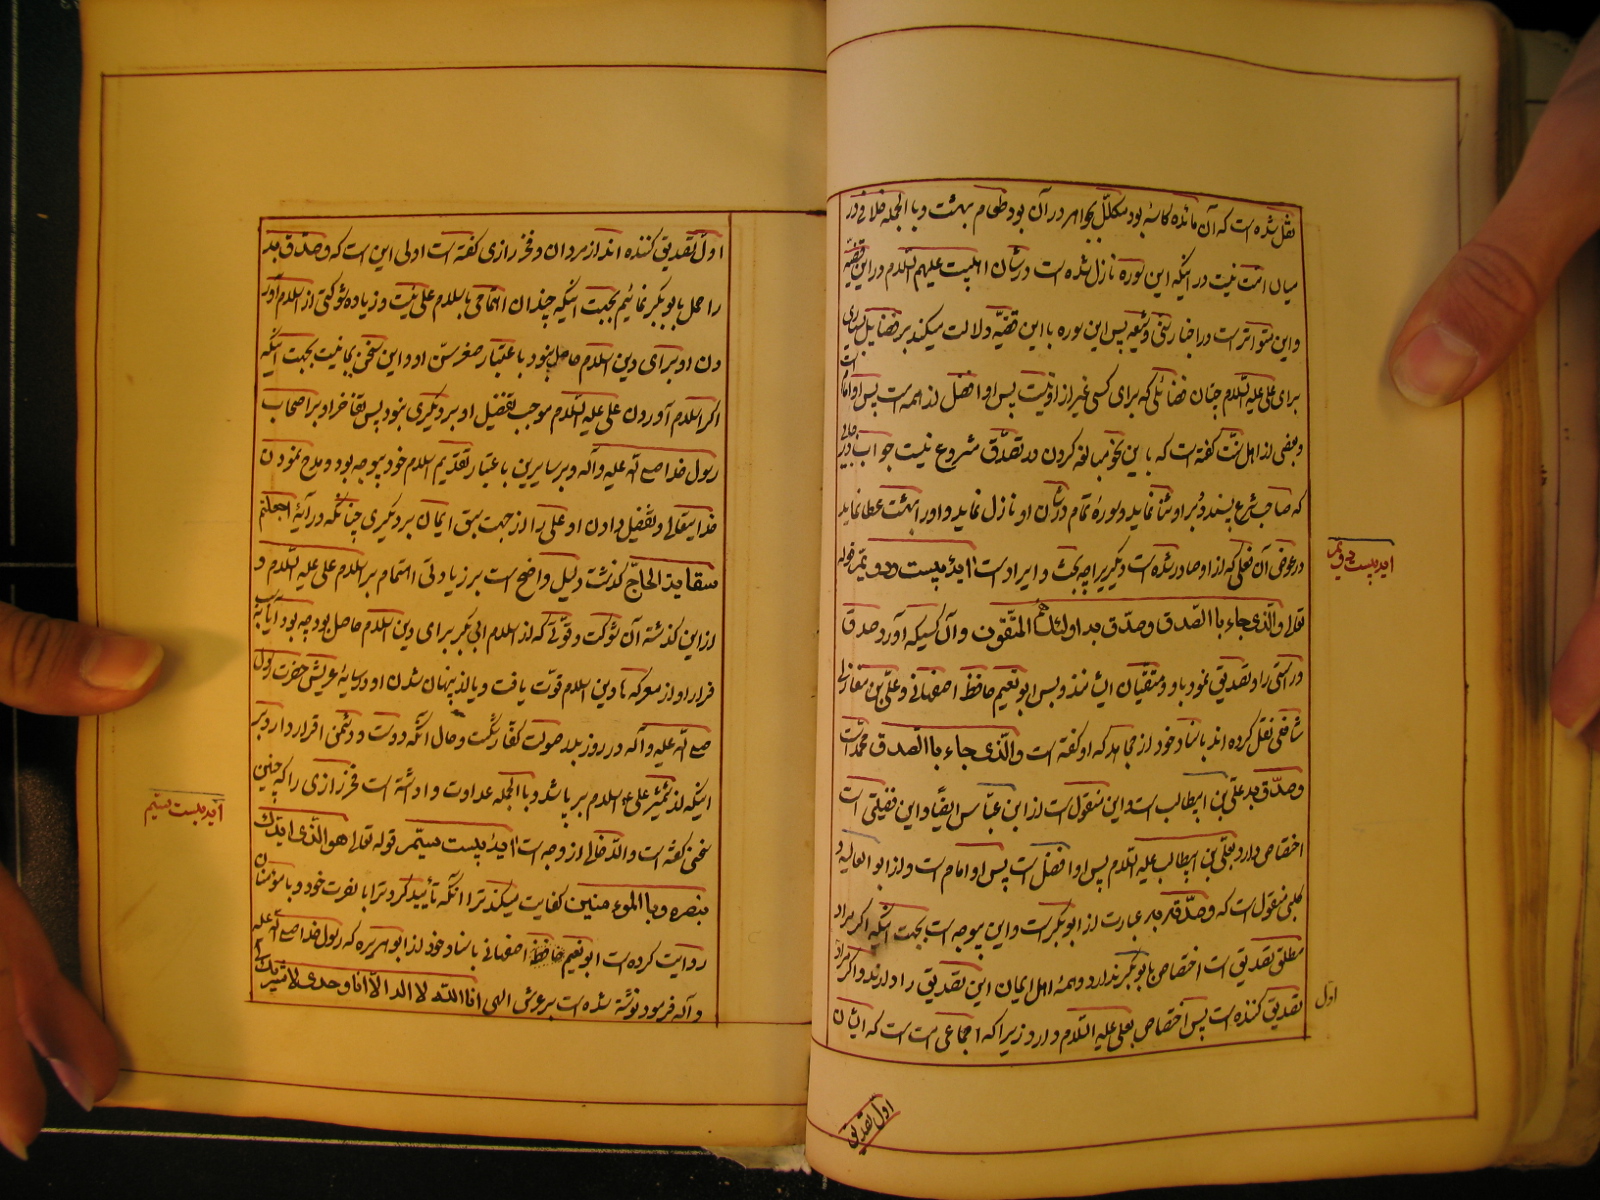 نقل شده است که آن مائده کاسهٔ بود مکلّل بجواهر در آن بود طعام بهشت و با الجمله خلافی در
میان امّت نیست در اینکه این سوره نازل شده است در شأن اهلبیت علیهم السّلام در این قضیّه
و این متواتر است در اخبار سنّی و شیعه پس این سوره با این قضیّه دلالت میکند بر فضایل بسیاری
برای علی علیه السّلام چنان فضائلی که برای کسی غیر از او نیست پس او افضل از همه است پس او امام است
و بعضی از اهل سنّت گفته است که باین نحو مبالغه کردن در تصدّق مشروع نیست جواب در جائی
که صاحب شرع پسندد و بر او ثنا نماید و سورهٔ تمام در شأن او نازل نماید و او را بهشت عطا نماید
در عوض آن فعلی که از او صادر شده است دیگریرا چه بحث و ایراد است آیهٔ بیست و دویّم قوله
تعالی والّذی جاء باالصّدق وصدّق به اولئک هم المتّقون و آن کسیکه آورد صدق
و راستی را و تصدیق نمود باو و متّقیان ایشانند و بس ابو نعیم حافظ اصفهانی و علی بن مغازلی
شافعی نقل کرده اند باسناد خود از مجاهد که او گفته است والّذی جاء باالصدق محمّد است
وصدّق به علی بن ابیطالب است و این منقول است از ابن عبّاس ایضاً و این فضیلتی است
اختصاص دارد بعلی بن ابیطالب علیه السّلام پس او افضل است پس او امام است و از ابو العالیه و
کلبی منقول است که وصدّق به عبارت از ابوبکر است و این بیوجه است بجهت اینکه اگر مراد
مطلق تصدیق است اختصاص بابوبکر ندارد و همهٔ اهل ایمان این تصدیق را دارند و اگر مراد اوّل
تصدیق کننده است پس اختصاص بعلی علیه السّلام دارد زیرا که اجماعی امت است که ایشان
آیه بیست و دویم
اوّل
اوّل تصدیق
اوّل تصدیق کننده اند از مردان و فخر رازی گفته است اولی این است که وصدّق به
را حمل بابوبکر نمائیم بجهت اینکه چندان اهتمامی باسلام علی نیست و زیاده شوکتی از اسلام آور
دن او برای دین اسلام حاصل نبود باعتبار صغر سنّ او و این سخن بیمعنیست بجهت اینکه
اگر اسلام آوردن علی علیه السّلام موجب تفضیل او بر دیگری نبود پس تفاخر او بر اصحاب
رسول خدا صلی الله علیه وآله و بر سایرین باعتبار تقدیم اسلام خود بیوجه بود و مدح نمودن
خدایتعالی و تفضیل دادن او علی را از جهت سبق ایمان بر دیگری چنانکه در آیهٔ اجعلتم
سقایة الحاجّ گذشت دلیل واضح است بر زیادتی اهتمام بر اسلام علی علیه السّلام و
از این گذشته آن شوکت و قوّتی که از اسلام ابی بکر برای دین اسلام حاصل بود چه بود آیا بسبب
فرار او از معرکه ها دین اسلام قوّت یافت و یا از پنهان شدن او در سایهٔ عریش حضرت رسول
صلی الله علیه وآله در روز بدر صولت کفّار شکست و حال آنکه دوست و دشمن اقرار دارد بر
اینکه از شمشیر علی ع اسلام بر پا شد و با الجمله عداوت وا داشته است فخر رازی را که چنین
سخنی گفته است والله خالی از وجه است آیهٔ بیست و سیّم قوله تعالی هو الّذی ایّدک
بنصره وباالمؤمنین کفایت میکند ترا آنکه تأیید کرد ترا با نصرت خود و با مؤمنان
روایت کرده است ابو نعیم حافظ اصفهانی باسناد خود از ابو هریره که رسول خدا صلی الله علیه
وآله فرمود نوشته شده است بر عرش الهی انا الله لا اله الّا انا وحدی لا شریک لی
آیه بیست و سیّم